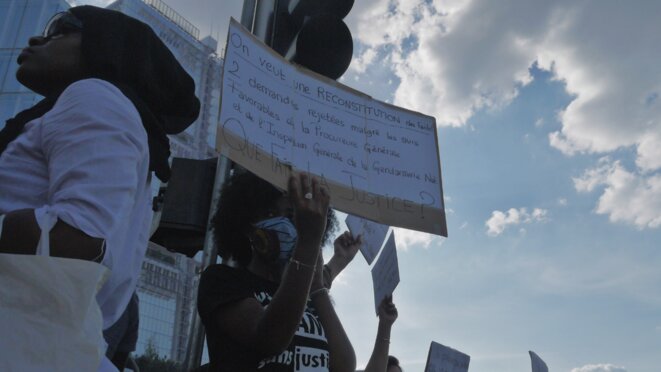 On veut une RECONSTITUTION des faits!
2 demandes rejetées malgré les avis
Favorables de la Procureure Générale
et de l'Inspection Générale de la Gendarmerie Na
QUE FAIT LA JUSTICE ?
sans justice